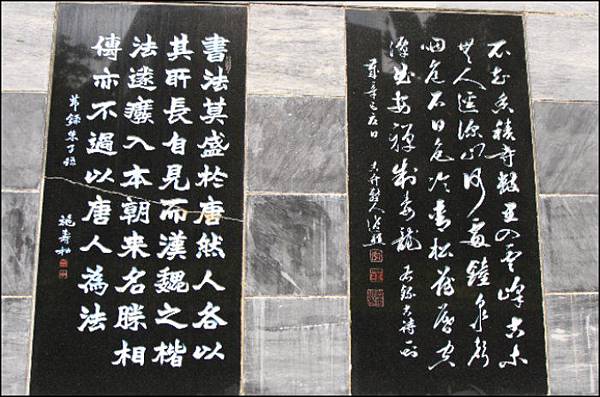 不知香積寺數里入雲峰古木
無人逕深山何處鐘泉聲
咽危石日色冷青松薄暮空
潭曲安禪制毒龍 右錄古詩一首
歲辛巳夏日
書法莫盛於唐然人各以
其所長自見而漢魏之楷
法遂癈入本朝來名勝相
傳亦不過以唐人為法
節錄朱子語 施壽